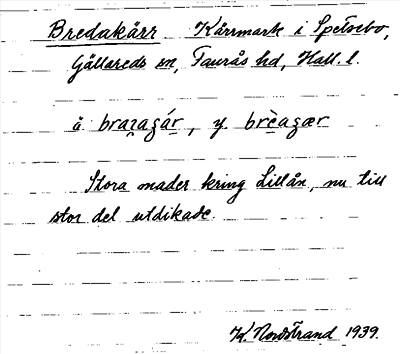 Bredakärr Kärrmark i Spetsebo,
Gällareds sn, Faurås hd, Hall. l.
å brazagár, y. brèagær
Stora mader kring Lillån, nu till
stor del utdikade.
K. Nordstrand 1939.